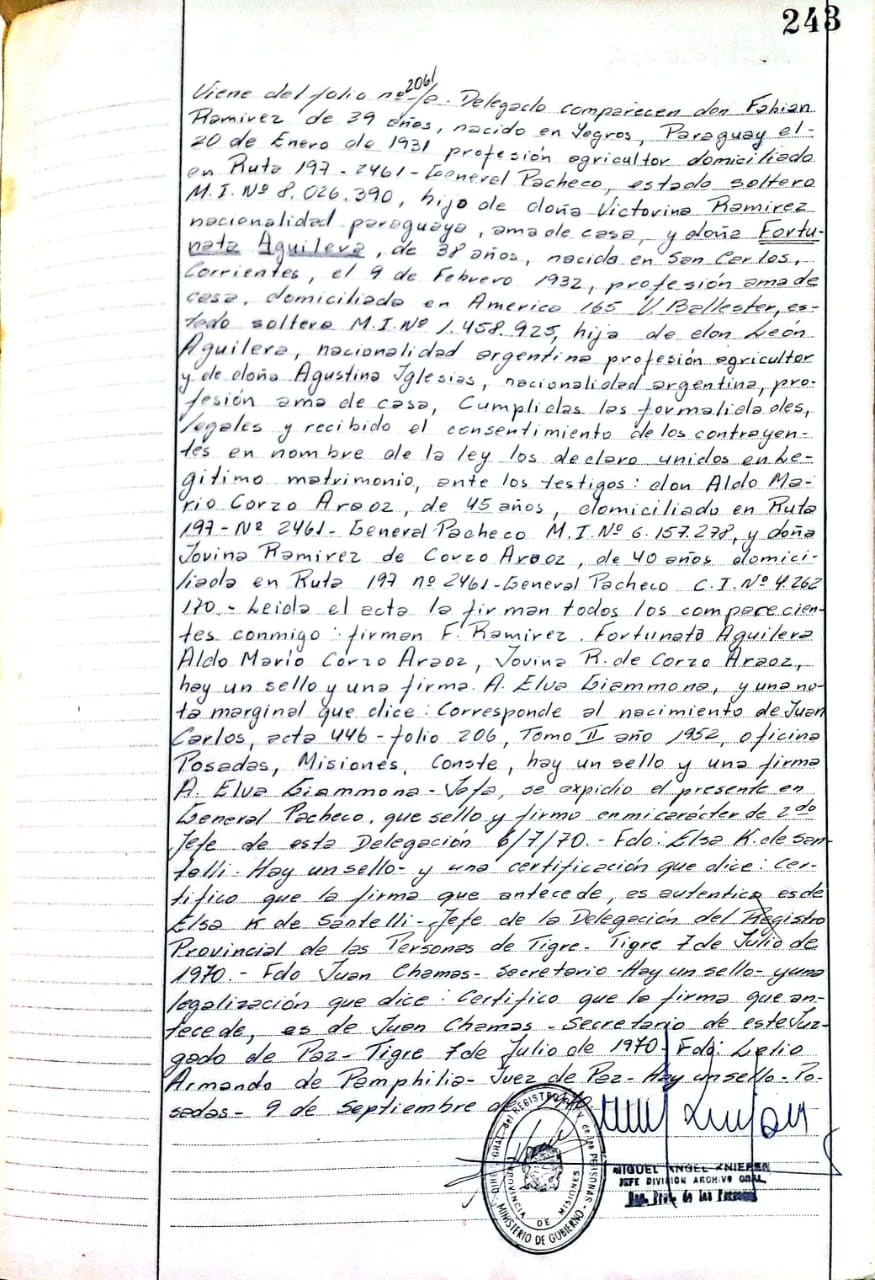 243
Viene del folio nº 2061/ Delegado comparecen don Fabian
Ramirez de 39 años, nacido en Yegros, Paraguay el-
20 de Enero de 1931 profesión agricultor domiciliado
en Ruta 197 - 2461 - General Pacheco, estado soltero
M.I. Nº 8.026.390, hijo de doña Victorina Ramirez
nacionalidad paraguaya, ama de casa, y doña Fortu-
nata Aguilera, de 38 años, nacida en San Carlos,
Corrientes, el 9 de Febrero 1932, profesión ama de
casa, domiciliada en America 165 V. Ballester, es-
tado soltera M.I. Nº 1.458.925, hija de don León
Aguilera, nacionalidad argentina profesión agricultor
y de doña Agustina Iglesias, nacionalidad argentina, pro-
fesión ama de casa, Cumplidas las formalidades,
legales y recibido el consentimiento de los contrayen-
tes en nombre de la ley los declaro unidos en Le-
gitimo matrimonio, ante los testigos: don Aldo Ma-
rio Corzo Araoz, de 45 años, domiciliado en Ruta
197 - Nº 2461 - General Pacheco M.I. Nº 6.157.278, y doña
Jovina Ramirez de Corzo Araoz, de 40 años domici-
liada en Ruta 197 nº 2461 - General Pacheco C.I. Nº 4.262
170 - Leida el acta la firman todos los comparecien-
tes conmigo: firman F. Ramirez. Fortunata Aguilera
Aldo Mario Corzo Araoz, Jovina R. de Corzo Araoz,
hay un sello y una firma. A. Elva Giammona, y una no-
ta marginal que dice: Corresponde al nacimiento de Juan
Carlos, acta 446 - folio 206, Tomo II año 1952, oficina
Posadas, Misiones, Conste, hay un sello y una firma
A. Elva Giammona - Jefa, se expidio el presente en
General Pacheco, que sello y firmo en mi carácter de 2do
Jefe de esta Delegación 6/7/70. - Fdo: Elsa K. de San-
telli. Hay un sello - y una certificación que dice: Cer-
tifico que la firma que antecede, es autentica es de
Elsa K de Santelli - Jefe de la Delegación del Registro
Provincial de las Personas de Tigre - Tigre 7 de Julio de
1970. - Fdo Juan Chamas - Secretario - Hay un sello - y una
legalización que dice: Certifico que la firma que an-
tecede, es de Juan Chamas - Secretario de este Juz-
gado de Paz - Tigre 7 de Julio de 1970 - Fdo: Lelio
Armando de Pamphilia - Juez de Paz - Hay un sello - Po-
sadas - 9 de Septiembre de
PROVINCIA DE MISIONES
MINISTERIO DE GOBIERNO
MIGUEL ANGEL KNIEPEN
JEFE DIVISION ARCHIVO GRAL.